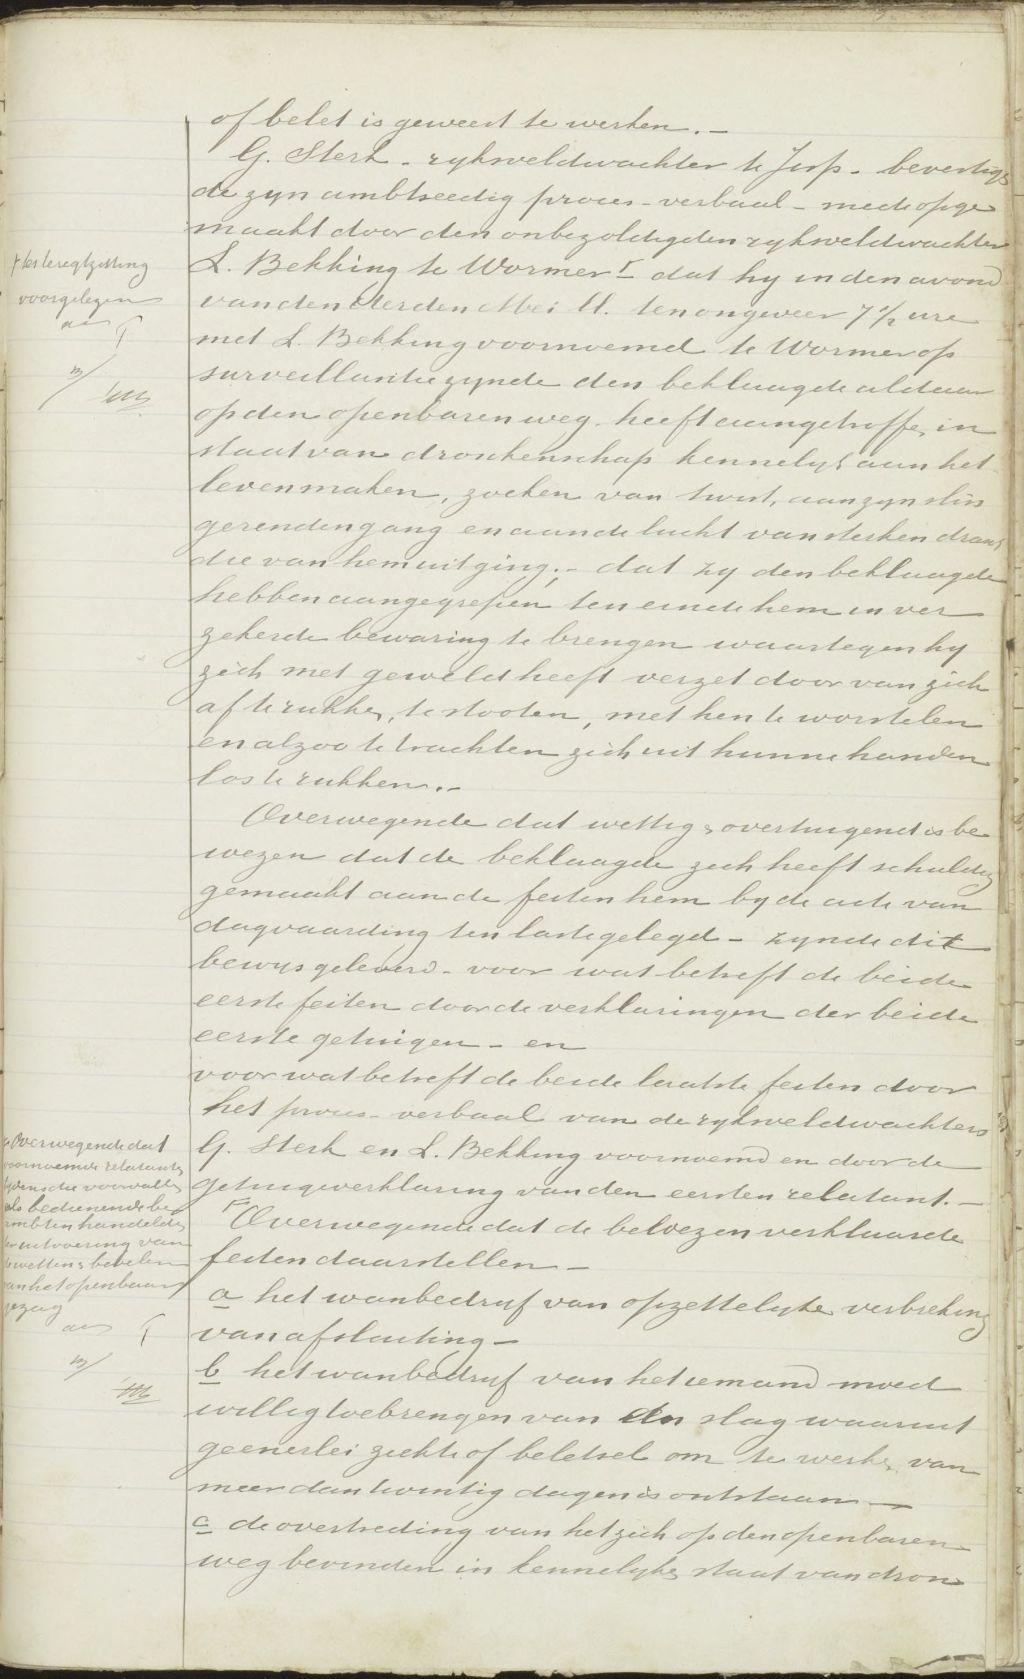 of belet is geweest te werken. –
G. Sterk – rykveldwachter te Jisp – bevestig
de zyn ambtseedig proces-verbaal – mede opge
maakt door den onbezoldigden rykveldwachter
L. Bekking te Wormer Γ dat hy in den avond
van den derden Mei ll. ten ongeveer 7 1/2 ure
met L. Bekking voornoemd te Wormer op
surveillantie zynde den beklaagde aldaar
op den openbaren weg heeft aangetroffen in
staat van dronkenschap kennelyk aan het
levenmaken, zoeken van twist, aan zyn slin
gerenden gang en aan de lucht van sterken drank
die van hem uitging; – dat zy den beklaagde
hebben aangegrepen ten einde hem in ver
zekerde bewaring te brengen waartegen hy
zich met geweld heeft verzet door van zich
af te rukken, te stooten, met hen te worstelen
en alzoo te trachten zich uit hunne handen
los te rukken. –
Overwegende dat wettig & overtuigend is be
wezen dat de beklaagde zich heeft schuldig
gemaakt aan de feiten hem by de acte van
dagvaarding ten laste gelegd – zynde dit
bewys geleverd – voor wat betreft de beide
eerste feiten door de verklaringen der beide
eerste getuigen – en
voor wat betreft de beide laatste feiten door
het proces-verbaal van de rykveldwachters
G. Sterk en L. Bekking voornoemd en door de
getuigeverklaring van den eersten relatant. –
Γ Overwegende dat de bewezen verklaarde
feiten daarstellen –
a het wanbedryf van opzettelyke verbreking
van afsluiting –
b het wanbedryf van het iemand moed
willig toebrengen van een slag waaruit
geenerlei ziekte of beletsel om te werken van
meer dan twintig dagen is ontstaan –
c de overtreding van het zich op den openbaren
weg bevinden in kennelyke staat van dron
Γ ter teregtzitting
voorgelezen
Γ Overwegende dat
voornoemde relatanten
tydens die voorvallen
als bedienende be
ambten handelden
ter uitvoering van
de wetten & bevelen
van het openbaar
gezag